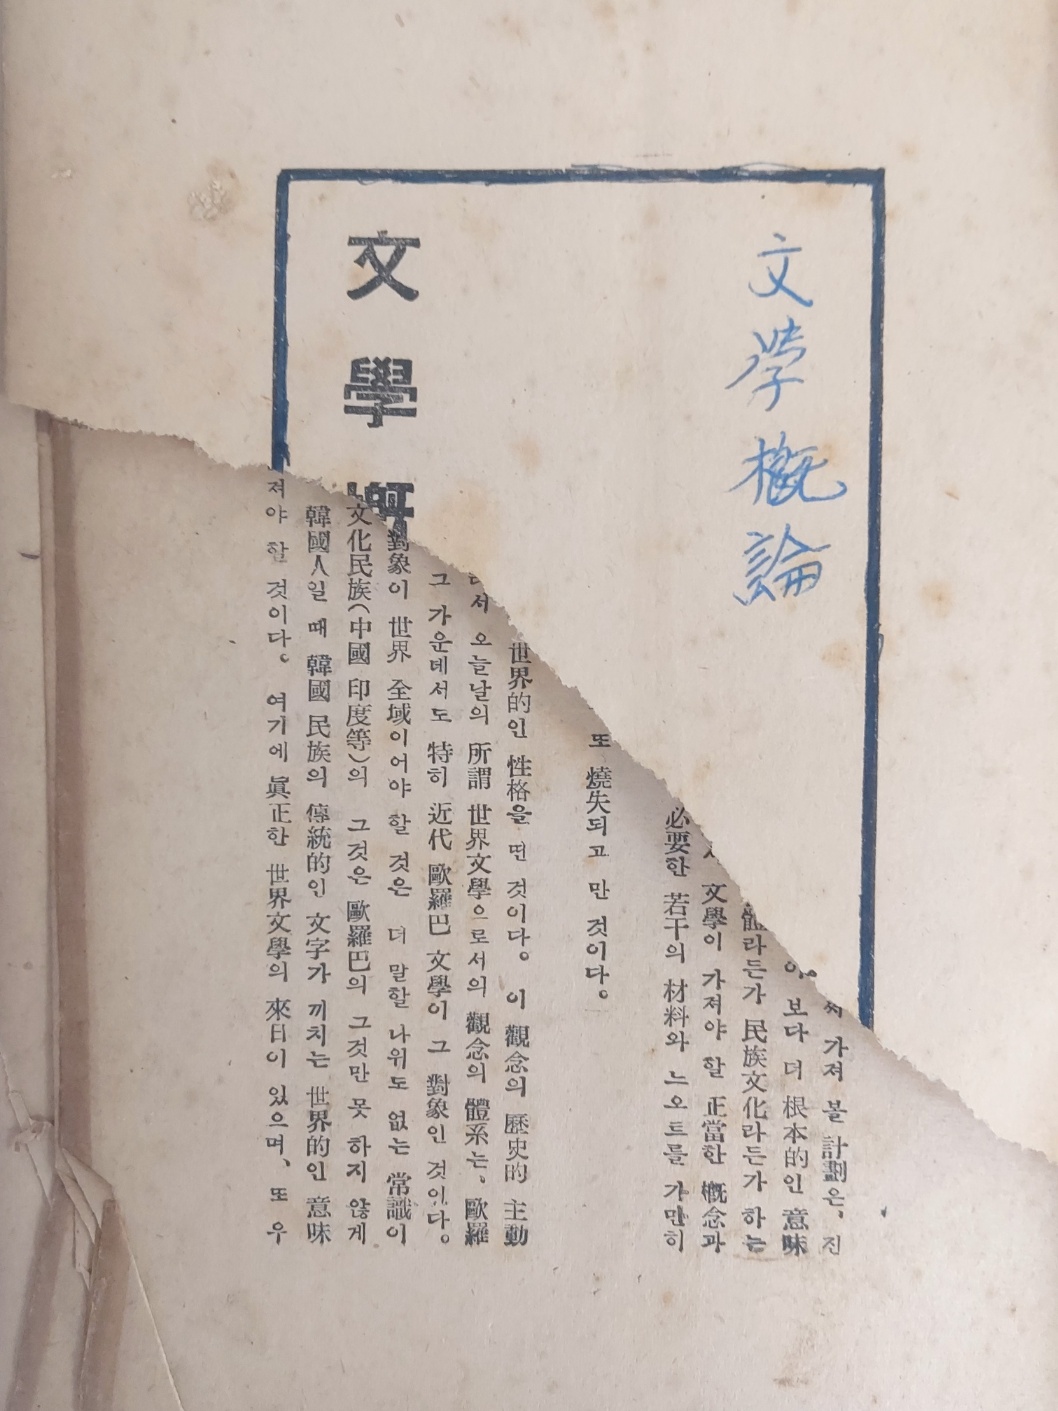 文學概論
文學概
가져 볼 計劃은, 진
보다 더 根本的인 意味
體라든가 民族文化라든가 하는
文學이 가져야 할 正當한 概念과
必要한 若干의 材料와 느오트를 가만히
또 燒失되고 만 것이다。
世界的인 性格을 띤 것이다。 이 觀念의 歷史的 主動
서 오늘날의 所謂 世界文學으로서의 觀念의 體系는、歐羅
그 가운데서도 特히 近代 歐羅巴 文學이 그 對象인 것이다。
對象이 世界 全域이어야 할 것은 더 말할 나위도 없는 常識이
文化民族(中國 印度等)의 그것은 歐羅巴의 그것만 못 하지 않게
韓國人일 때 韓國 民族의 傳統的인 文字가 끼치는 世界的인 意味
져야 할 것이다。 여기에 眞正한 世界文學의 來日이 있으며、또 우